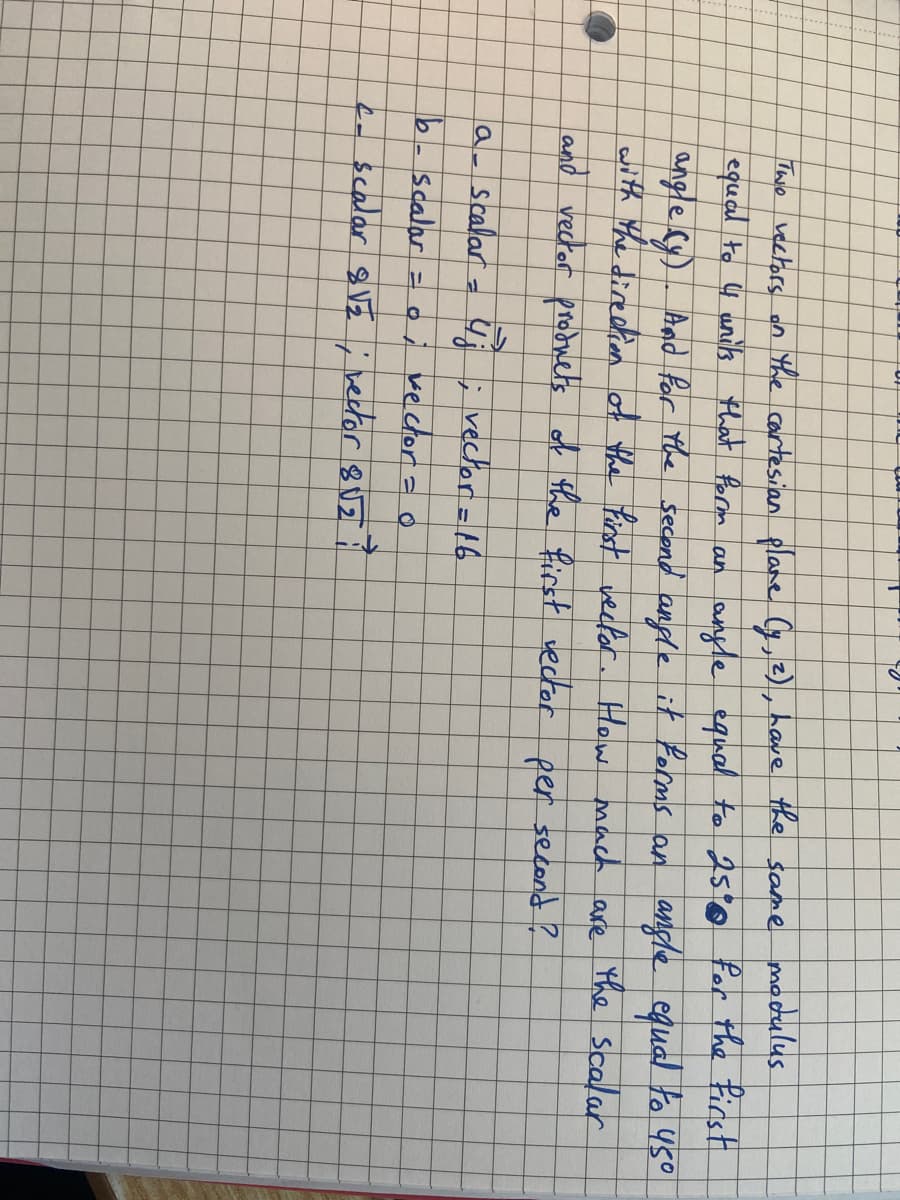 Two vectors on the cartesian plane (y, z), have the same modulus
equal to 4 units that form an angle equal to 25° for the first
angle (y). And for the second angle it forms an angle equal to 45°
with the direction of the first vector. How much are the scalar
and vector products of the first vector per second?
a- scalar = 4j⃗ ; vector = 16
b- scalar = 0 ; vector = 0
c- scalar 8√2 ; vector 8√2 i⃗